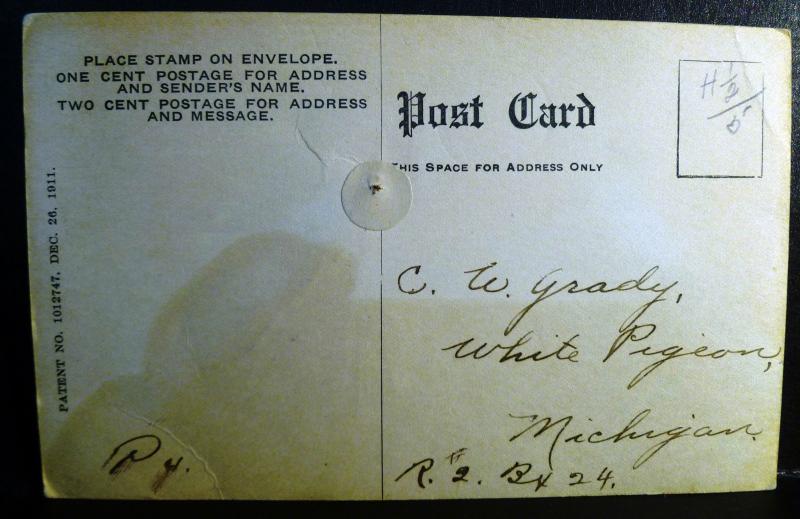 PLACE STAMP ON ENVELOPE.
ONE CENT POSTAGE FOR ADDRESS
AND SENDER'S NAME.
TWO CENT POSTAGE FOR ADDRESS
AND MESSAGE.
PATENT NO. 1012747, DEC. 26, 1911.
Post Card
THIS SPACE FOR ADDRESS ONLY
C. W. Grady,
White Pigeon,
Michigan.
R. #2. Bx 24.